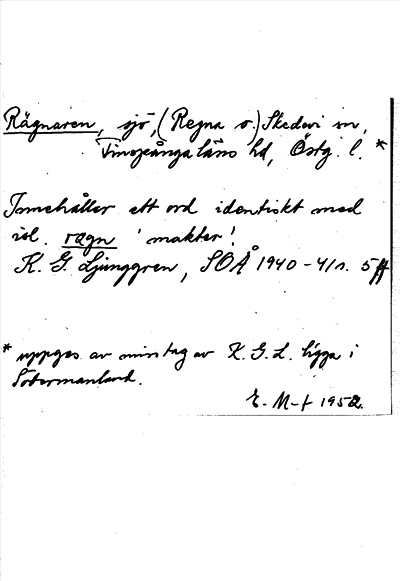 Rägnaren, sjö, (Regna o.) Skedevi sn,
Finspångaläns hd, Östg. l. *
Innehåller ett ord identiskt med
isl. rǫgn 'makter'!
K. G. Ljunggren, SOÅ 1940-41 s. 5 ff
* uppges av misstag av K. G. L. ligga i
Södermanland.
E. M-t 1952.